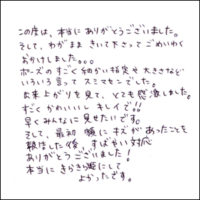 この度は、本当にありがとうございました。
そして、わがまま きいて下さって ごめいわく
おかけしました。。。
ポーズの すごく 細かい指定や 大きさなど
いろいろ 言って スミマセンでした。
出来上がりを見て、とても感激しました。
すごく かわいいし キレイで!!
早くみんなに見せたいです。
そして、最初 額に キズが あったことを
報告した後、すばやい対応
ありがとう ございました!
本当に きらきら 堂にして
よかったです。